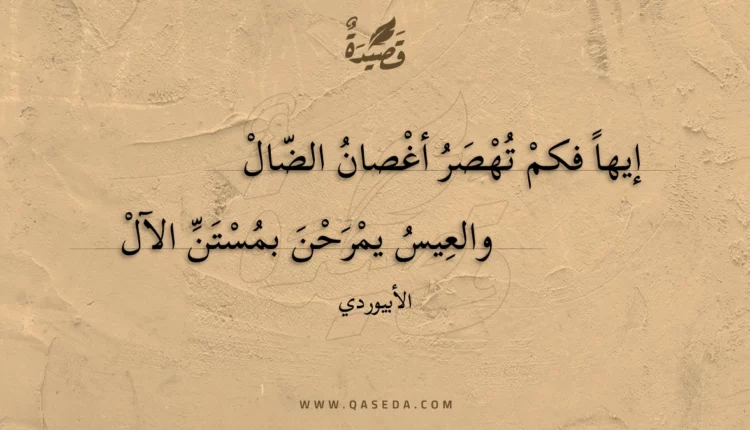 قَصِيْدَةٌ
إيهاً فكمْ تُهْصَرُ أغْصانُ الضّالْ
والعِيسُ يمْرَحْنَ بمُسْتَنِّ الآلْ
الأبيوردي
WWW.QASEDA.COM